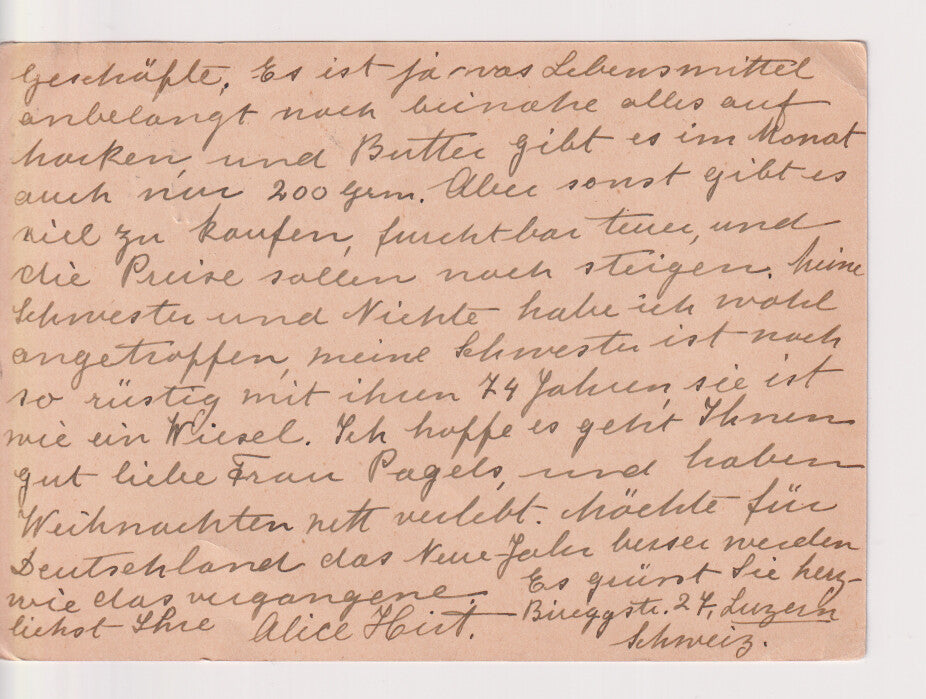 Geschäfte. Es ist ja was Lebensmittel
anbelangt noch beinahe alles auf
harken, und Butter gibt es im Monat
auch nur 200 Grm. Aber sonst gibt es
viel zu kaufen, furchtbar teuer, und
die Preise sollen noch steigen. Meine
Schwester und Nichte habe ich wohl
angetroffen, meine Schwester ist noch
so rüstig mit ihren 74 Jahren, sie ist
wie ein Wiesel. Ich hoffe es geht Ihnen
gut liebe Frau Pagels, und haben
Weihnachten nett verlebt. Möchte für
Deutschland das Neue Jahr besser werden
wie das vergangene. Es grüsst Sie herz-
lichst Ihre Alice Hirt. Bireggstr. 27, Luzern
Schweiz.